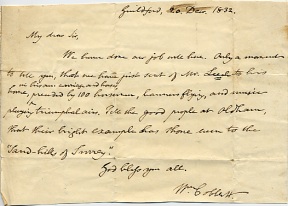 Guildford, 20. Dec. 1832.
My dear Sir,
We have done our job well here. Only a moment
to tell you, that we have just sent off Mr. Leech to his
in his own carriage and horses,
home, preceded by 100 horsemen, banners flying, and music
playing triumphal airs. Tell the good people at Oldham,
that their bright example has shone even to the
"Sand-hills of Surrey."
God bless you all.
Wm. Cobbett.